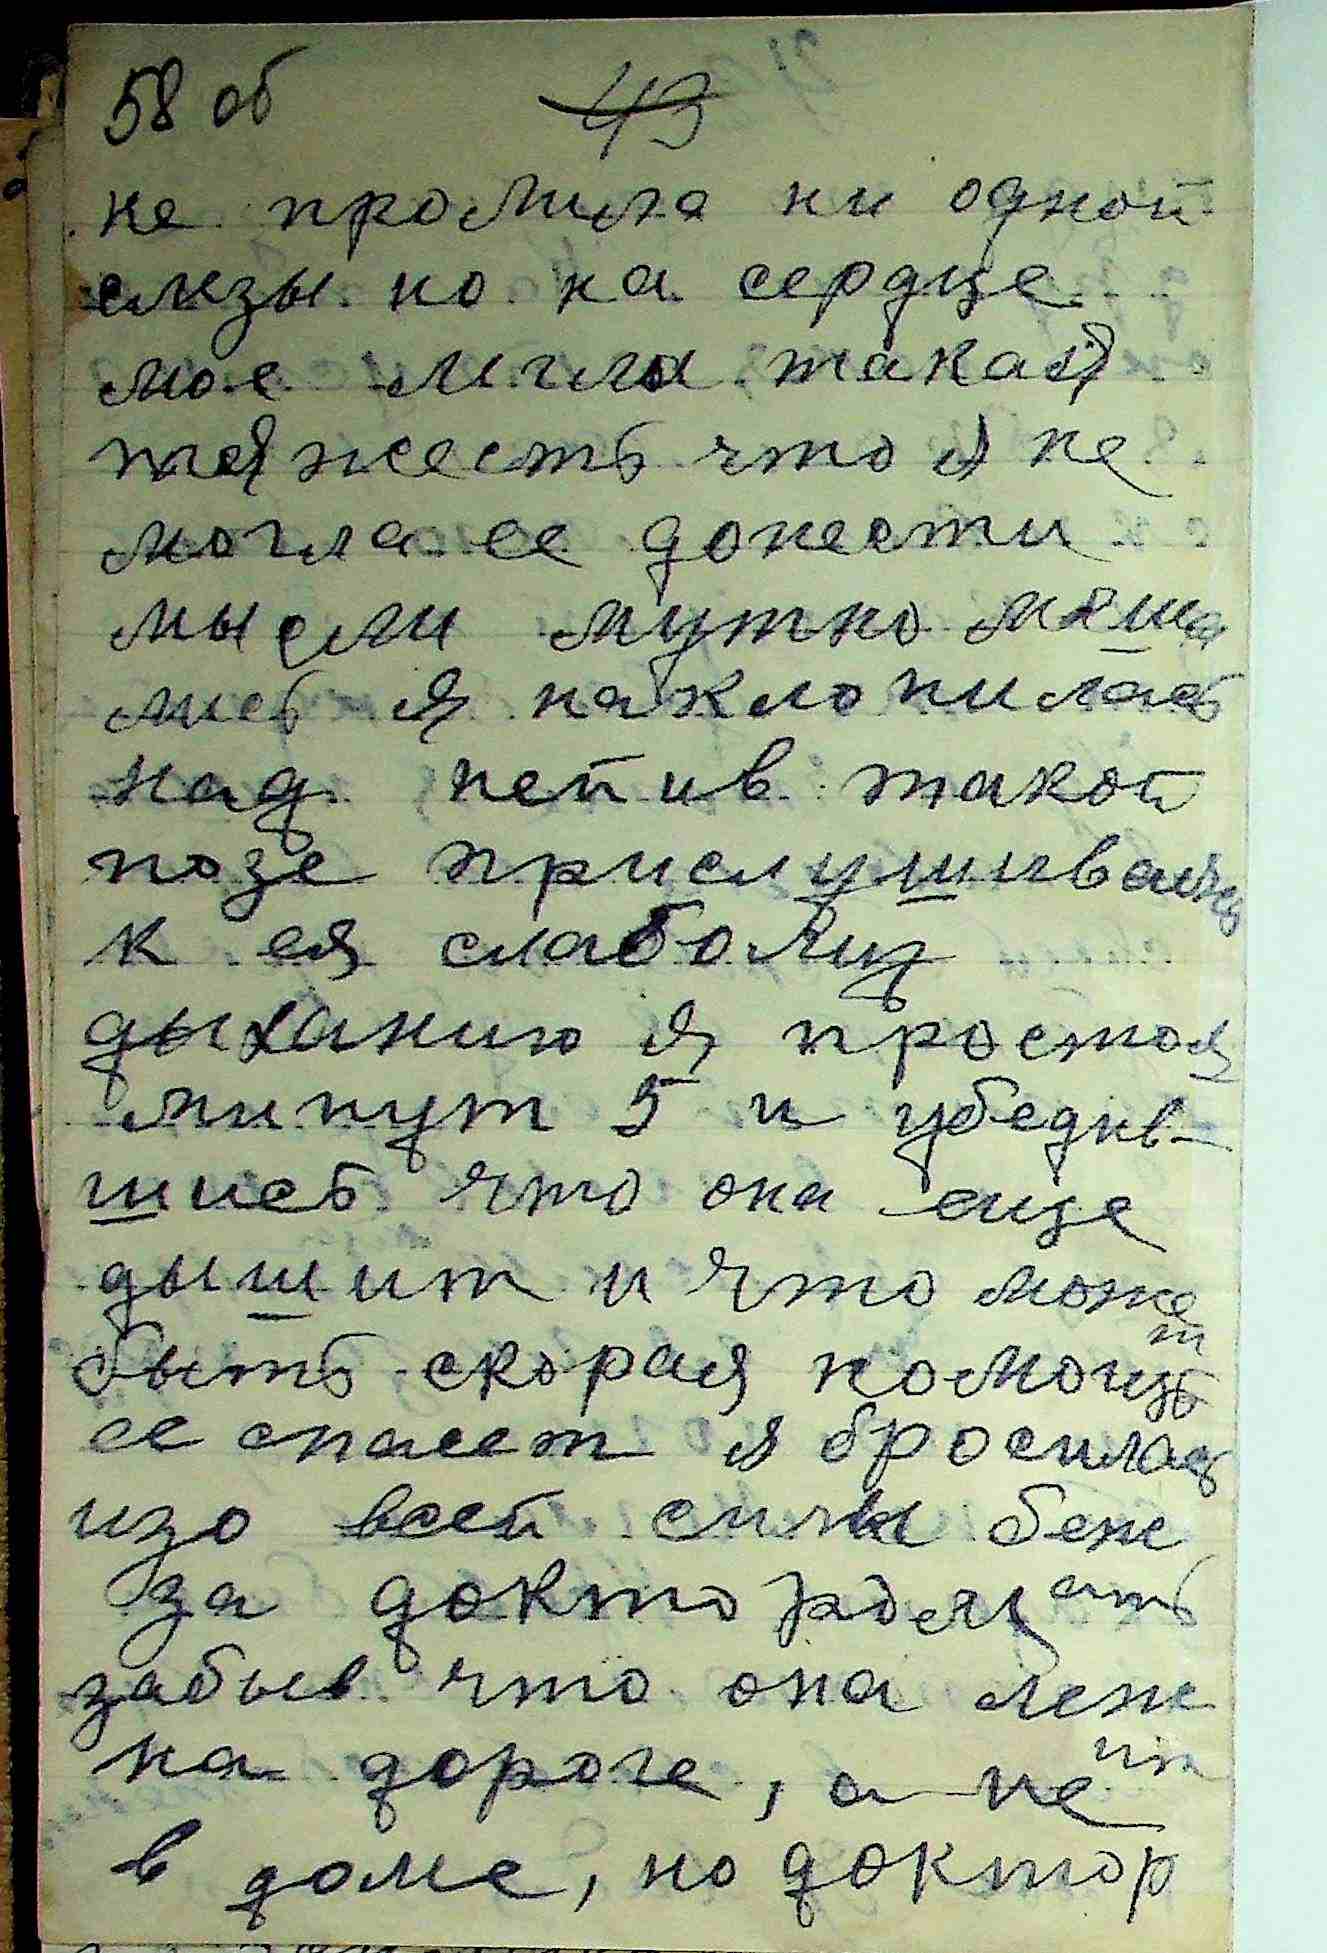 58 об 43
не пролила ни одной
слезы но на сердце
мое легла такая
тяжесть что я не
могла ее донести
мысли мутно меша
лись я наклонилась
над ней и в такой
позе прислушиваясь
к ея слабому
дыханию я простоя
минут 5 и убедив-
шись что она еще
дышит и что може
т
быть скорая помощь
ее спасет я бросилась
изо всей силы беж
за доктором ать
забыв что она леж
на дороге, а не ит
в доме, но доктор